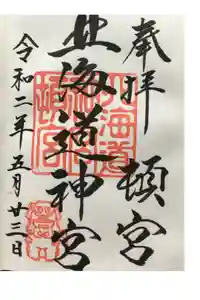 奉拝
頓宮
北海道神宮
令和二年五月廿三日
北海道
神宮
頓宮